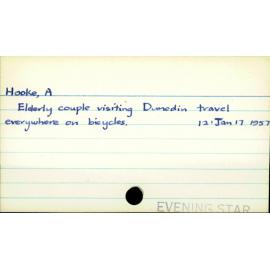 Hooke, A
Elderly couple visiting Dunedin travel
everywhere on bicycles. 12: Jan 17 1957
EVENING STAR